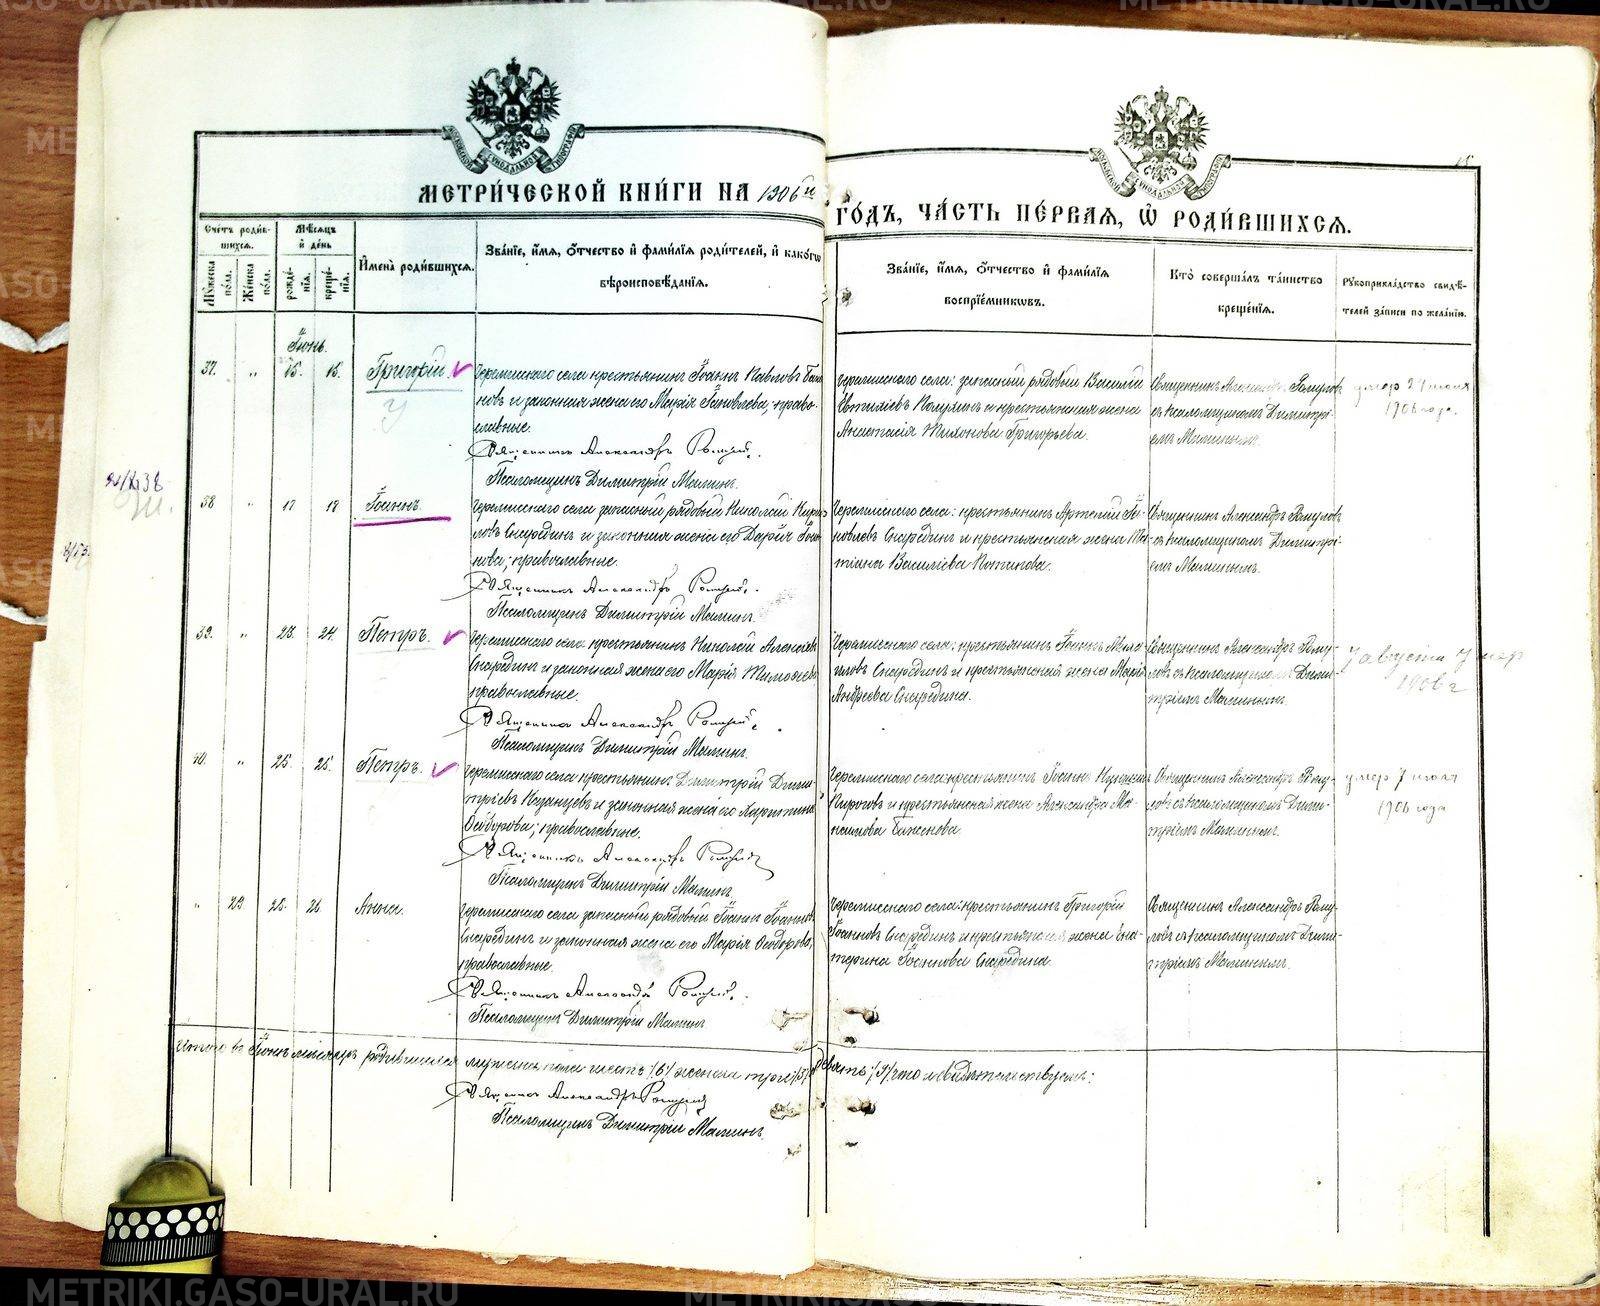 МЕТРИ́ЧЕСКОЙ КНИ́ГИ НА 1906 й
ГО́ДЪ, ЧА́СТЬ ПЕ́РВАЯ, Ѡ҆ РОДИ́ВШИХСЯ.
Сче́тъ роди́в-
шихся.
Му́жеска по́ла.
Же́нска по́ла.
Мѣ́сяцъ
и҆ де́нь
рожде́нїя.
креще́нїя.
И҆мена̀ роди́вшихся.
Зва́нїе, и҆́мя, ѻ҆́тчество и҆ фами́лїя роди́телей, и҆ како́гѡ
вѣроисповѣ́данїя.
Зва́нїе, и҆́мя, ѻ҆́тчество и҆ фами́лїя
воспрїе́мникѡвъ.
Кто̀ соверша́лъ та́инство
креще́нїя.
Рꙋкоприкла́дство свидѣ́-
телей за́писи по жела́нїю.
Іюнь.
37. " 15. 15. Григорій
Черемисскаго села крестьянинъ Іоаннъ Павловъ
новъ и законная жена его Марія Іаковлева, право-
славные.
Священникъ Александръ
Псаломщикъ Димитрій Малинъ.
Черемисскаго села: запасный рядовой Василій
и крестьянская жена
Анастасія Тихонова Григорьева.
Священникъ Александръ
съ псаломщикомъ Димитрі-
емъ Малинымъ.
умер 24 июня
1906 года.
38 " 17 18 Іоаннъ.
Черемисскаго села запасный рядовой Николай
ловъ Снарединъ и законная жена его Дарія
нова, православные.
Священникъ Александръ
Псаломщикъ Димитрій Малинъ.
Черемисскаго села: крестьянинъ Артемій Іа-
ковлевъ Снарединъ и крестьянская жена Та-
тіана Василіева Потапова.
Священникъ Александръ
съ псаломщикомъ Димитрі-
емъ Малинымъ.
39. " 23. 24. Петръ.
Черемисскаго села крестьянинъ Николай Алексѣевъ
Снарединъ и законная жена его Марія Тимоѳеева,
православные.
Священникъ Александръ
Псаломщикъ Димитрій Малинъ.
Черемисскаго села: крестьянинъ Іоаннъ
Снарединъ и крестьянская жена Марія
Андреева Снаредина.
Священникъ Александръ
съ псаломщикомъ Дими-
тріемъ Малинымъ.
7 августа умер
1906 г
40. " 25. 25. Петръ.
Черемисскаго села крестьянинъ Димитрій Дими-
тріевъ Казанцевъ и законная жена его Харитина
Ѳеодорова, православные.
Священникъ Александръ
Псаломщикъ Димитрій Малинъ.
Черемисскаго села: крестьянинъ Іоаннъ
Пироговъ и крестьянская жена Александра
Священникъ Александръ
съ псаломщикомъ Дими-
тріемъ Малинымъ.
умер 7 июля
1906 года
" 29 25. 26. Анна.
Черемисскаго села запасный рядовой Іоаннъ Іоанновъ
Снарединъ и законная жена его Марія Ѳеодорова,
православные.
Священникъ Александръ
Псаломщикъ Димитрій Малинъ
Черемисскаго села: крестьянинъ Григорій
Іоанновъ Снарединъ и крестьянская жена Ека-
терина Іоаннова Снаредина.
Священникъ Александръ
съ псаломщикомъ Дими-
тріемъ Малинымъ.
Итого въ Іюнѣ мѣсяцѣ родившихся мужеска пола шесть /6/ женска три /3/ девять /9/ что и свидѣтельствуемъ:
Священникъ Александръ
Псаломщикъ Димитрій Малинъ.
METRIKI.GASO-URAL.RU